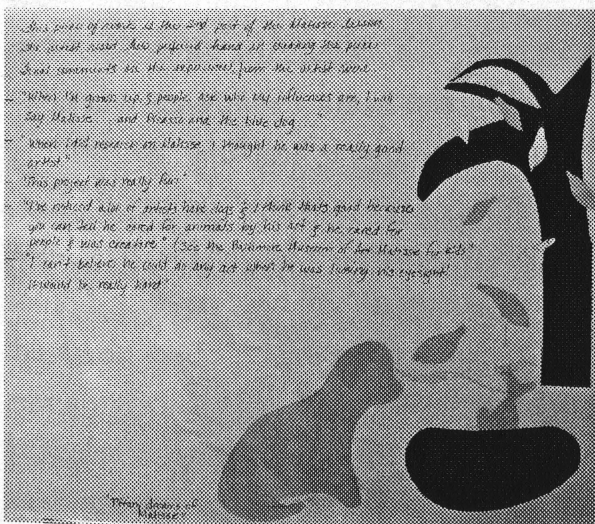 This piece of work is the 2nd part of the Matisse lesson
The artist used her preferred hand in creating the piece
Final comments on the experience from the artist were
– "When I'm grown up, & people ask who my influences are, I will
say Matisse and Picasso and the blue dog
– "When I did research on Matisse, I thought he was a really good
artist"
– "This project was really fun"
– "I've noticed a lot of artists have dogs & I think that's good because
you can tell he cared for animals by his art & he cared for
people & was creative" (see the Baltimore Museum of Art Matisse for kids"
– "I can't believe he could do any art when he was losing his eyesight!
It would be really hard"
dreams of
Matisse"